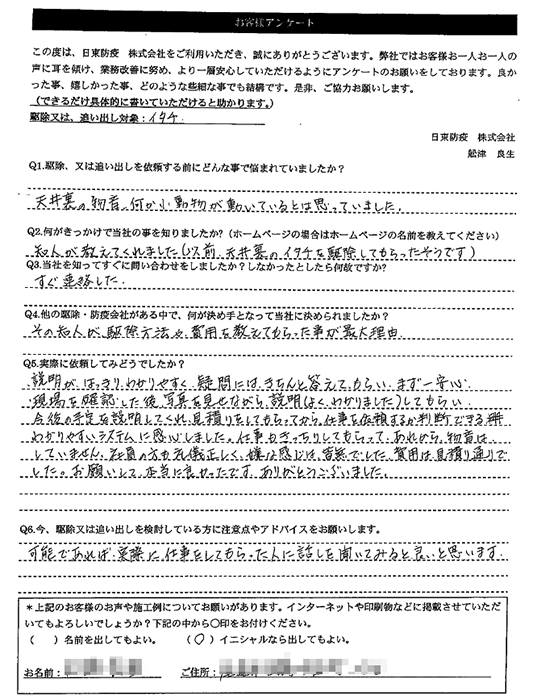 お客様アンケート
この度は、日東防疫　株式会社をご利用いただき、誠にありがとうございます。弊社ではお客様お一人お一人の
声に耳を傾け、業務改善に努め、より一層安心していただけるようにアンケートのお願いをしております。良か
った事、嬉しかった事、どのような些細な事でも結構です。是非、ご協力お願いします。
（できるだけ具体的に書いていただけると助かります。）
駆除又は、追い出し対象：イタチ
日東防疫　株式会社
舩津　良生
Q1.駆除、又は追い出しを依頼する前にどんな事で悩まれていましたか？
天井裏の物音、何か小動物が動いているとは思っていました。
Q2.何がきっかけで当社の事を知りましたか？（ホームページの場合はホームページの名前を教えてください）
知人が教えてくれました（以前、天井裏のイタチを駆除してもらったそうです）
Q3.当社を知ってすぐに問い合わせをしましたか？しなかったとしたら何故ですか？
すぐ連絡した。
Q4.他の駆除・防疫会社がある中で、何が決め手となって当社に決められましたか？
その知人が、駆除方法や費用を教えてもらった事が最大理由
Q5.実際に依頼してみてどうでしたか？
説明がはっきりわかりやすく、疑問にはきちんと答えてもらい、まず一安心
現場を確認した後、写真を見せながら、説明（よくわかりました）してもらい
今後の予定を説明してくれ、見積りをしてもらってから、仕事を依頼するか判断できる
わかりやすいシステムに感心しました。仕事もきっちりしてもらって、あれから、物音は
していません。社員の方も礼儀正しく、嫌な感じは、皆無でした。費用は見積り通りで
した。お願いして、本当に良かったです。ありがとうございました。
Q6.今、駆除又は追い出しを検討している方に注意点やアドバイスをお願いします。
可能であれば、実際に仕事をしてもらった人に話しを聞いてみると良いと思います。
＊上記のお客様のお声や施工例についてお願いがあります。インターネットや印刷物などに掲載させていただ
いてもよろしいでしょうか？下記の中から〇印をお付けください。
（　）名前を出してもよい。　（〇）イニシャルなら出してもよい。
お名前：　ご住所：